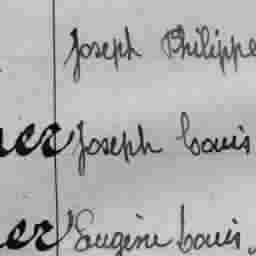 Joseph Philippe
er Joseph Louis
er Eugène Louis